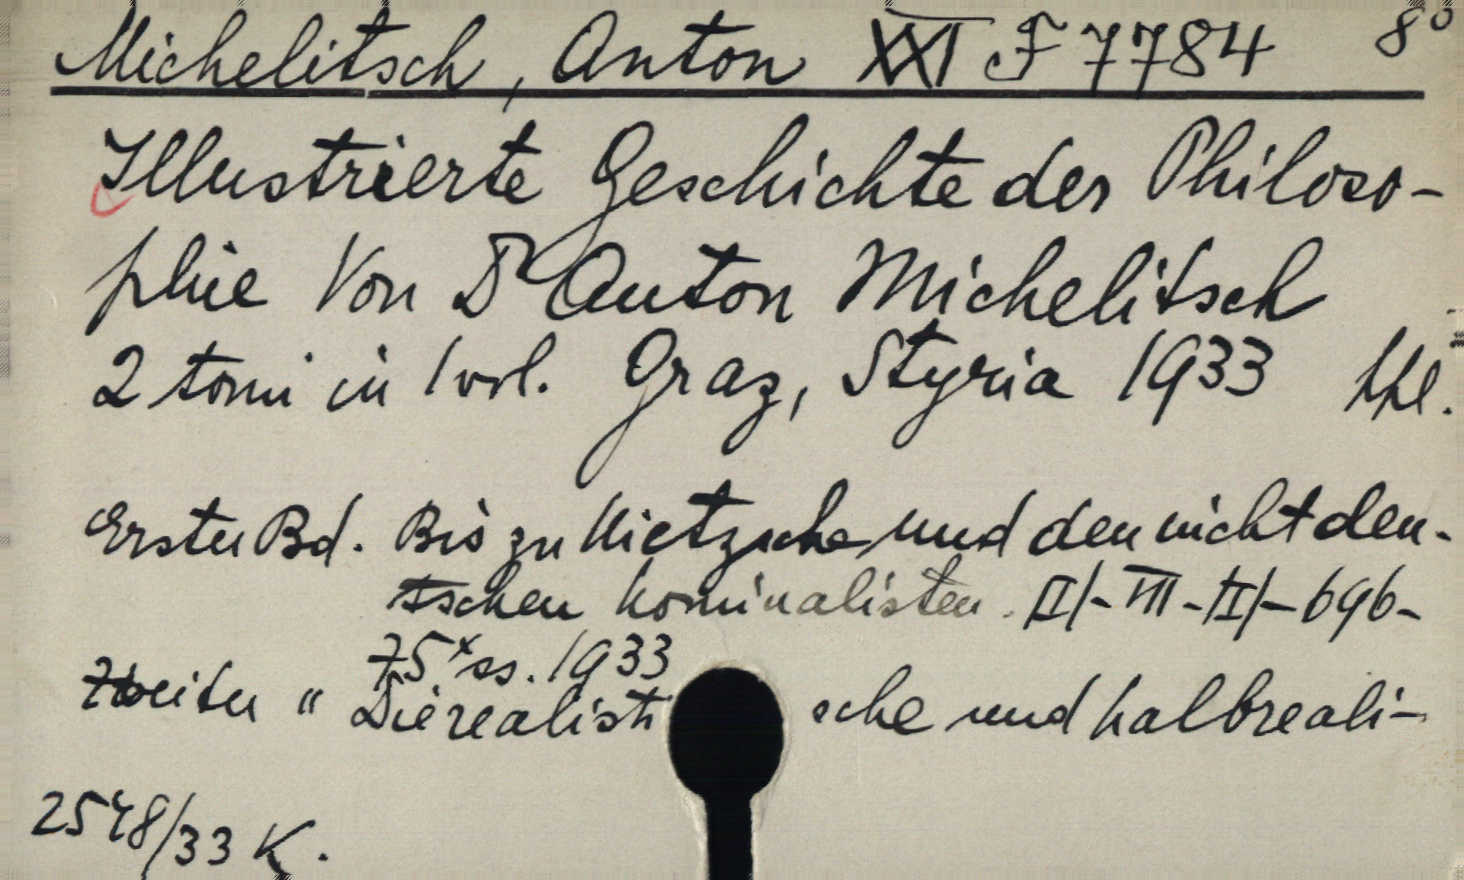 Michelitsch, Anton XXI F 7784 8°
Illustrierte Geschichte der Philoso-
phie Von Dr Anton Michelitsch
2 tomi in 1 vol. Graz, Styria 1933
Erster Bd. Bis zu Nietzsche und den nicht deu-
tschen Nominalisten. II/-VIII-II/-696-
75x ss. 1933
Zweiter " Die realistische und halbreali-
2548/33 K.